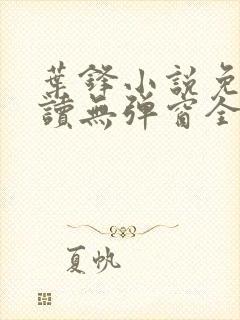 葉鋒小說免
讀無彈窗全
夏帆